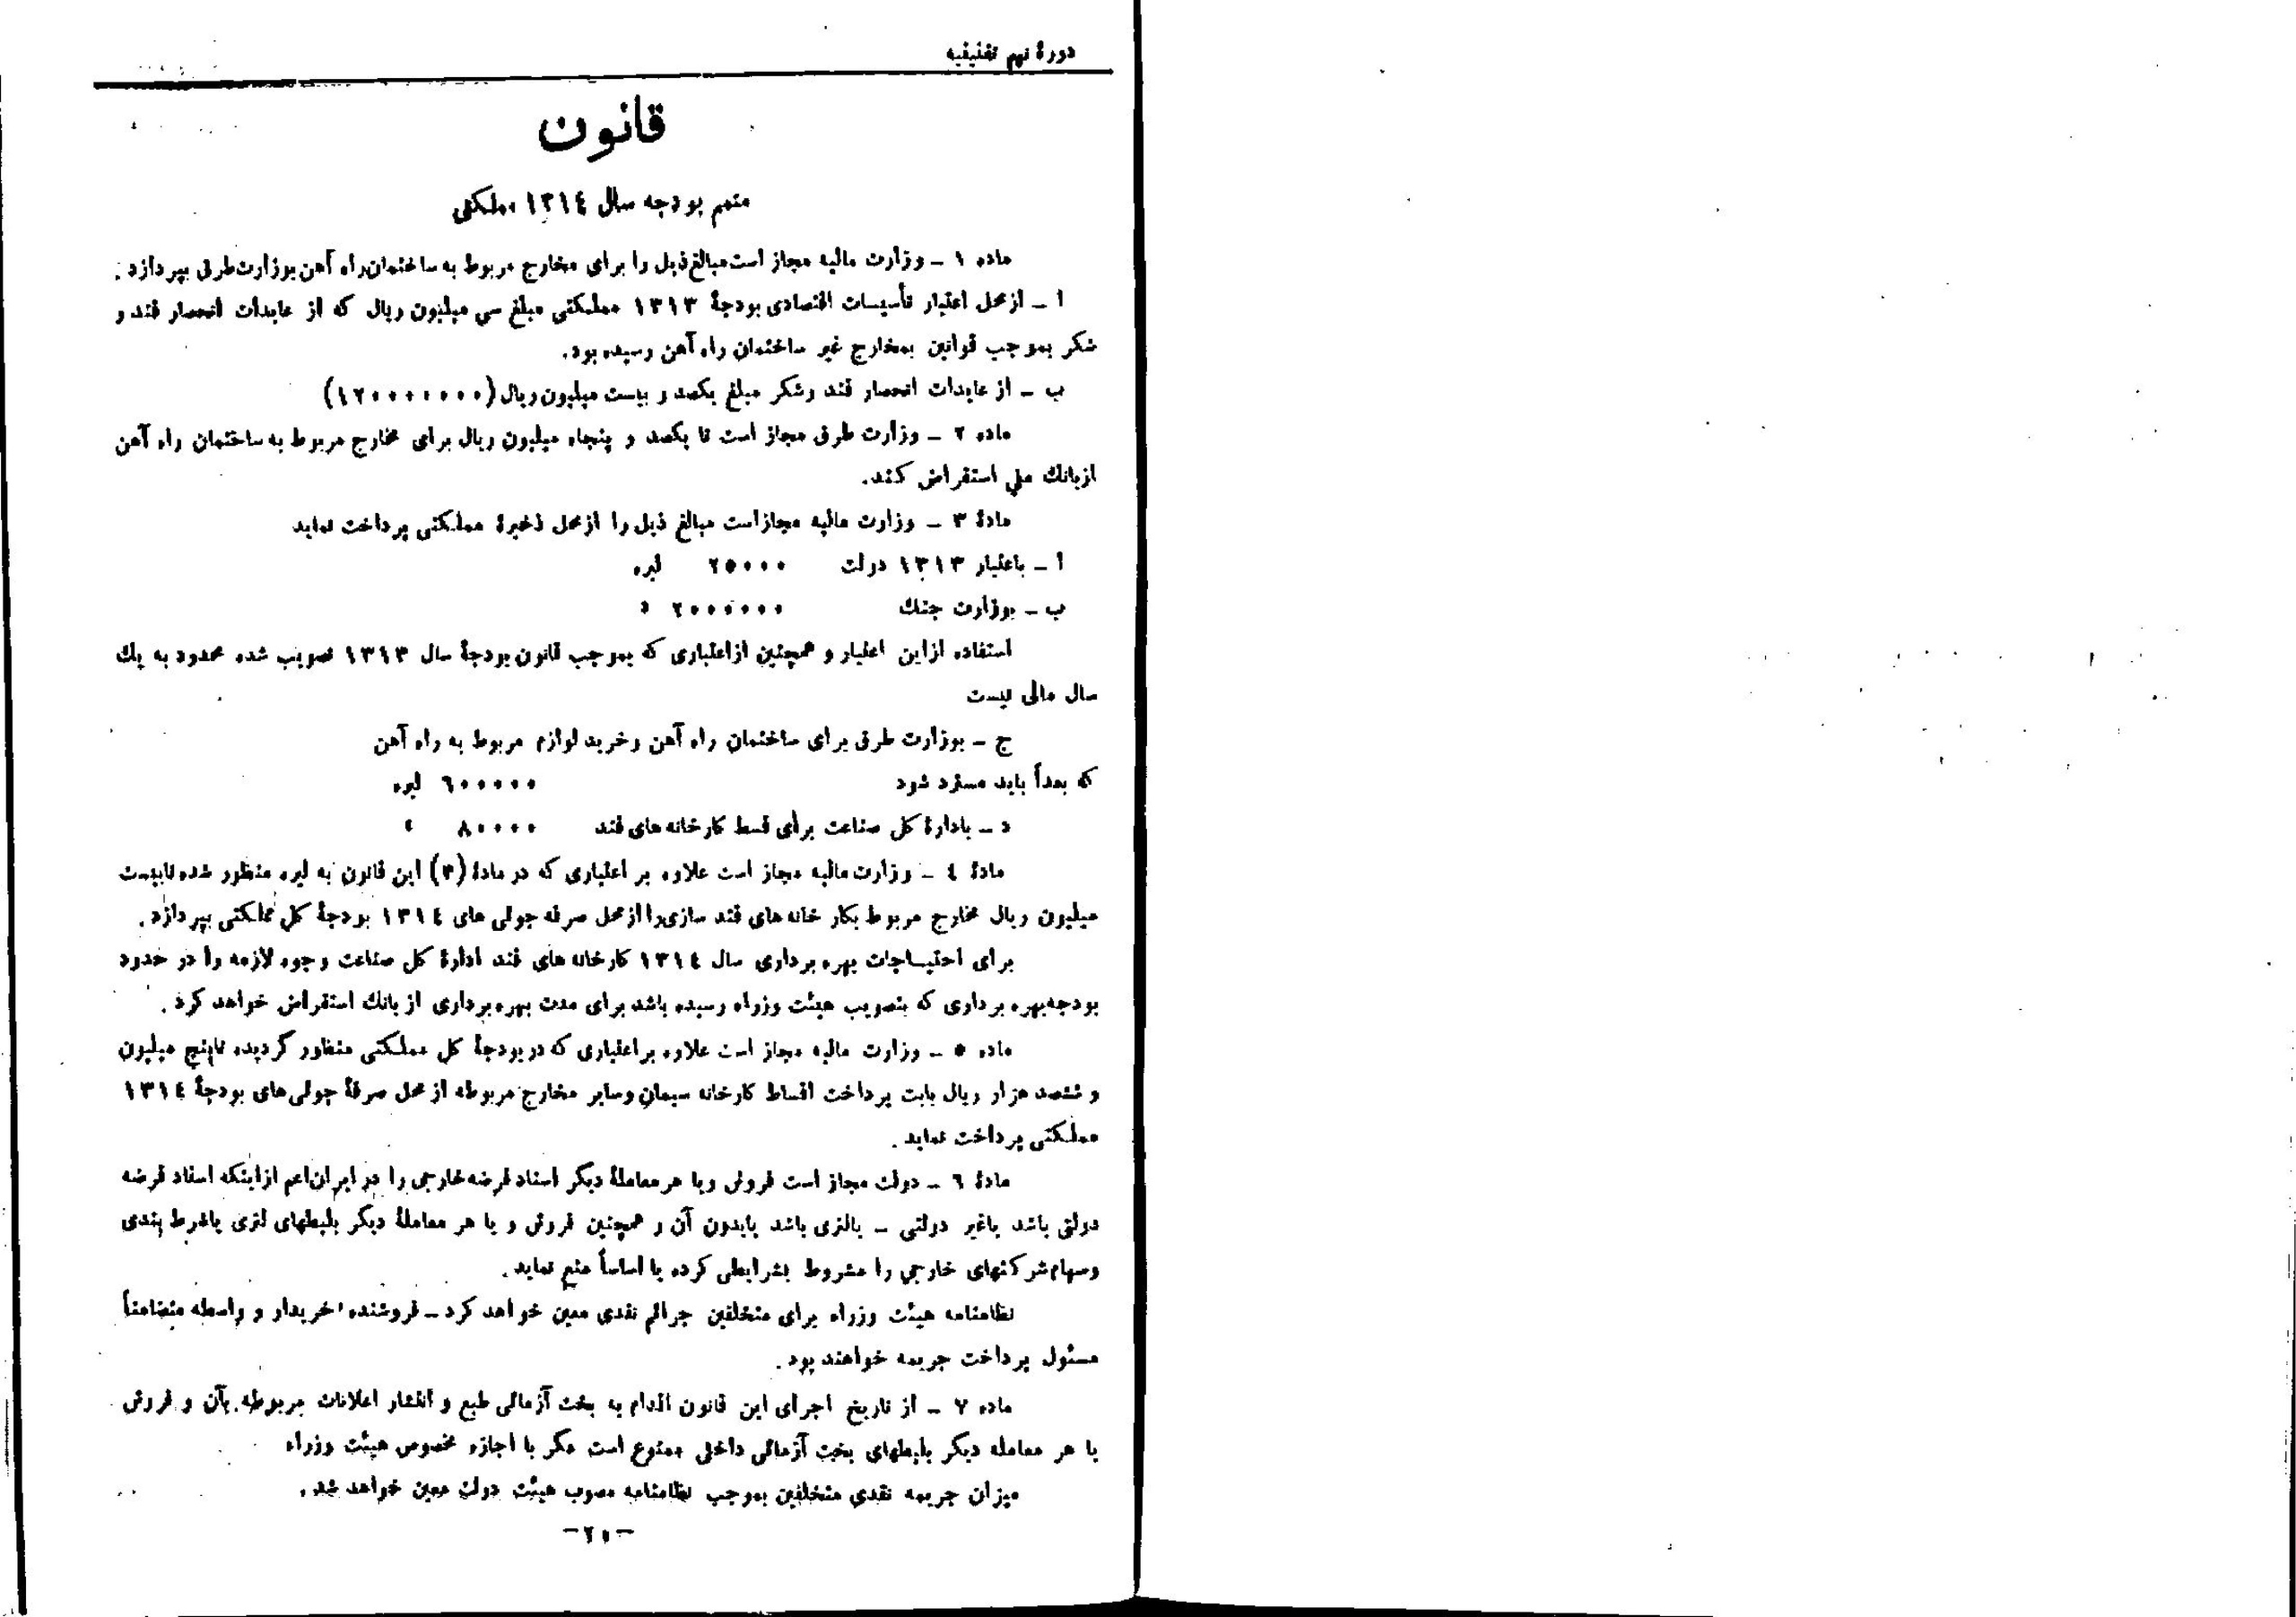 دورهٔ نهم تقنینیه
قانون
متمم بودجه سال ۱۳۱٤ مملکتی
ماده ۱ ـ وزارت مالیه مجاز است مبالغ ذیل را برای مخارج مربوط به ساختمان راه آهن بوزارت طرق بپردازد .
ا ـ از محل اعتبار تأسیسات اقتصادی بودجهٔ ۱۳۱۳ مملکتی مبلغ سی میلیون ریال که از عایدات انحصار قند و
شکر بموجب قوانین بمخارج غیر ساختمان راه آهن رسیده بود.
ب ـ از عایدات انحصار قند و شکر مبلغ یکصد و بیست میلیون ریال (۱۲۰۰۰۰۰۰۰)
ماده ۲ ـ وزارت طرق مجاز است تا یکصد و پنجاه میلیون ریال برای مخارج مربوط به ساختمان راه آهن
از بانك ملی استقراض کند.
مادهٔ ۳ ـ وزارت مالیه مجاز است مبالغ ذیل را از محل ذخیرهٔ مملکتی پرداخت نماید
ا ـ باعتبار ۱۳۱۳ دولت ۲۵۰۰۰ لیره
ب ـ بوزارت جنك ۲۰۰۰۰۰۰ »
استفاده از این اعتبار و همچنین از اعتباری که بموجب قانون بودجهٔ سال ۱۳۱۳ تصویب شده محدود به یك
سال مالی نیست
ج ـ بوزارت طرق برای ساختمان راه آهن و خرید لوازم مربوط به راه آهن
که بعداً باید مسترد شود ٦۰۰۰۰۰ لیره
د ـ بادارهٔ کل صناعت برای قسط کارخانه های قند ۸۰۰۰۰ »
مادهٔ ٤ ـ وزارت مالیه مجاز است علاوه بر اعتباری که در مادهٔ (۳) این قانون به لیره منظور شده تا بیست
میلیون ریال مخارج مربوط بکار خانه های قند سازی را از محل صرفه جوئی های ۱۳۱٤ بودجهٔ کل مملکتی بپردازد .
برای احتیاجات بهره برداری سال ۱۳۱٤ کارخانه های قند ادارهٔ کل صناعت وجوه لازمه را در حدود
بودجه بهره برداری که بتصویب هیئت وزراء رسیده باشد برای مدت بهره برداری از بانك استقراض خواهد کرد .
ماده ۵ ـ وزارت مالیه مجاز است علاوه بر اعتباری که در بودجهٔ کل مملکتی منظور گردیده تا پنج میلیون
و ششصد هزار ریال بابت پرداخت اقساط کارخانه سیمان و سایر مخارج مربوطه از محل صرفهٔ جوئی های بودجهٔ ۱۳۱٤
مملکتی پرداخت نماید .
مادهٔ ٦ ـ دولت مجاز است فروش و یا هر معاملهٔ دیگر اسناد قرضه خارجی را در ایران اعم از اینکه اسناد قرضه
دولتی باشد یا غیر دولتی ـ بالتری باشد یا بدون آن و همچنین فروش و یا هر معاملهٔ دیگر بلیطهای لتری یا شرط بندی
و سهام شرکتهای خارجی را مشروط بشرایطی کرده یا اساساً منع نماید .
نظامنامه هیئت وزراء برای متخلفین جرائم نقدی معین خواهد کرد ـ فروشنده ' خریدار و واسطه متضامناً
مسئول پرداخت جریمه خواهند بود .
ماده ۷ ـ از تاریخ اجرای این قانون اقدام به بخت آزمائی طبع و انتشار اعلانات مربوطه بآن و فروش
یا هر معامله دیگر بلیطهای بخت آزمائی داخلی ممنوع است مگر با اجازه مخصوص هیئت وزراء
میزان جریمه نقدی متخلفین بموجب نظامنامه مصوب هیئت دولت معین خواهد شد .